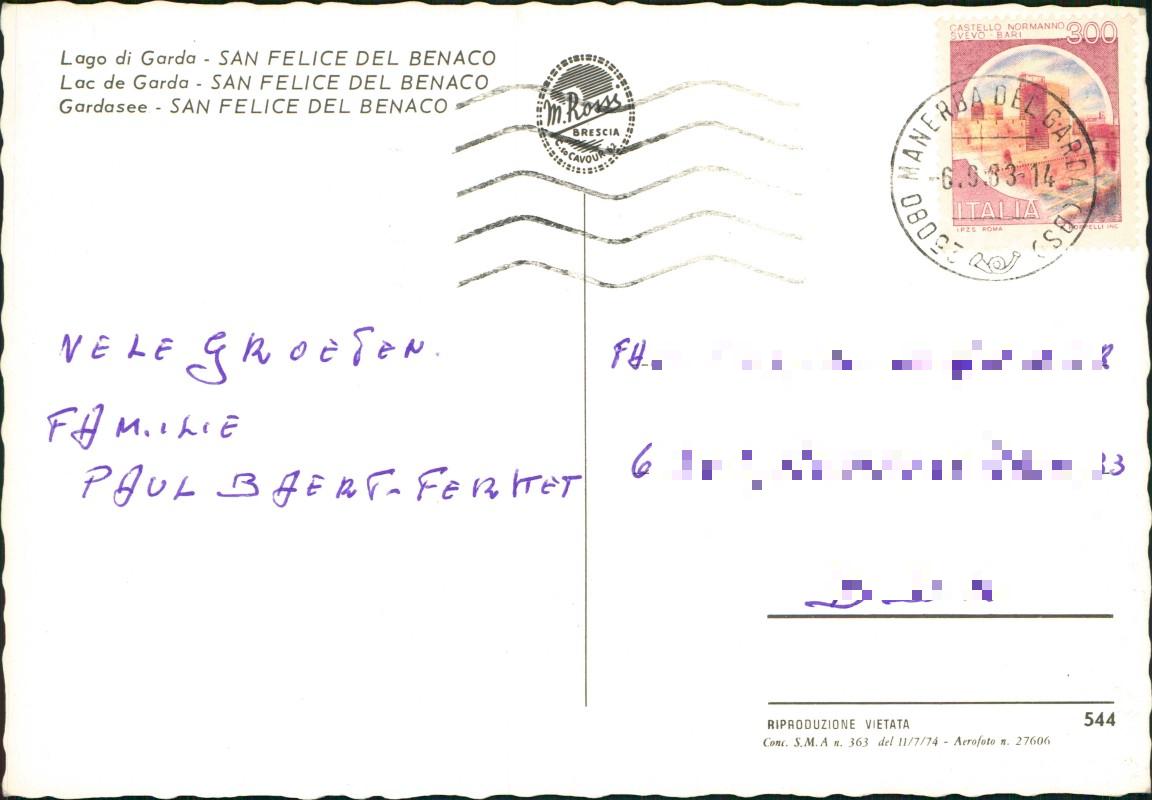 Lago di Garda - SAN FELICE DEL BENACO
Lac de Garda - SAN FELICE DEL BENACO
Gardasee - SAN FELICE DEL BENACO
M. Rossi
BRESCIA
CASTELLO NORMANNO
SVEVO - BARI
300
ITALIA
I.P.Z.S. ROMA
25080 MANERBA DEL GARDA (BS)
VELE GROETEN.
FAMILIE
PAUL BAERT-FERKET
FA.
6
RIPRODUZIONE VIETATA
544
Conc. S.M.A n. 363 del 11/7/74 - Aerofoto n. 27606